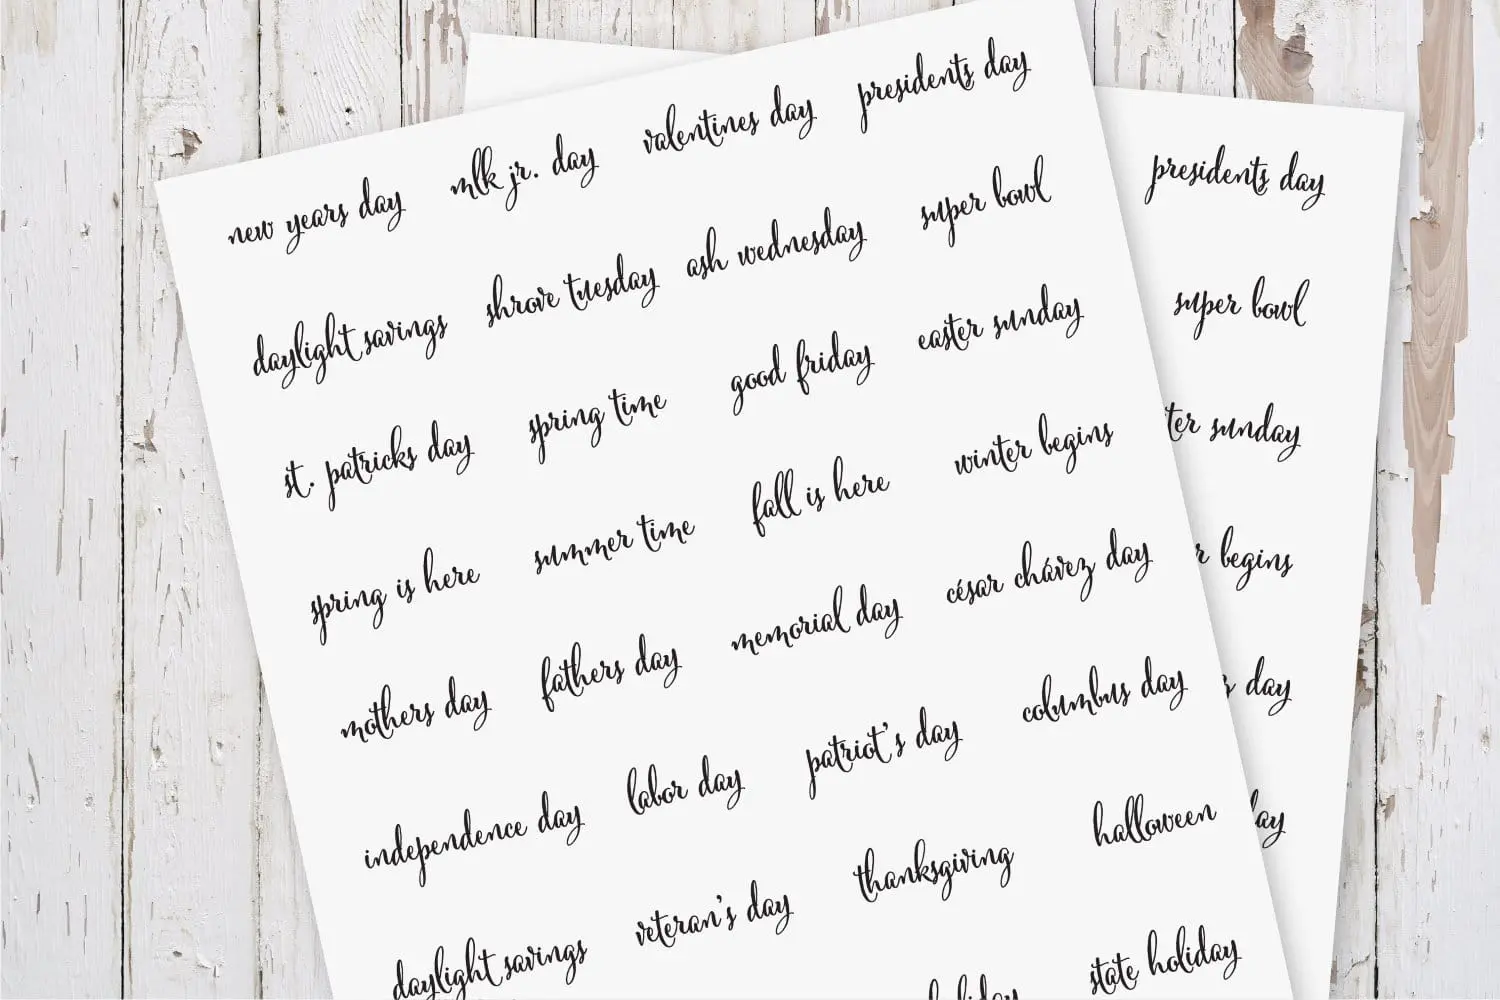 new years day mlk jr. day valentines day presidents day
daylight savings shrove tuesday ash wednesday super bowl
st. patricks day spring time good friday easter sunday
spring is here summer time fall is here winter begins
mothers day fathers day memorial day césar chávez day
independence day labor day patriot's day columbus day
daylight savings veteran's day thanksgiving halloween
holiday state holiday
presidents day
super bowl
ter sunday
r begins
day
day